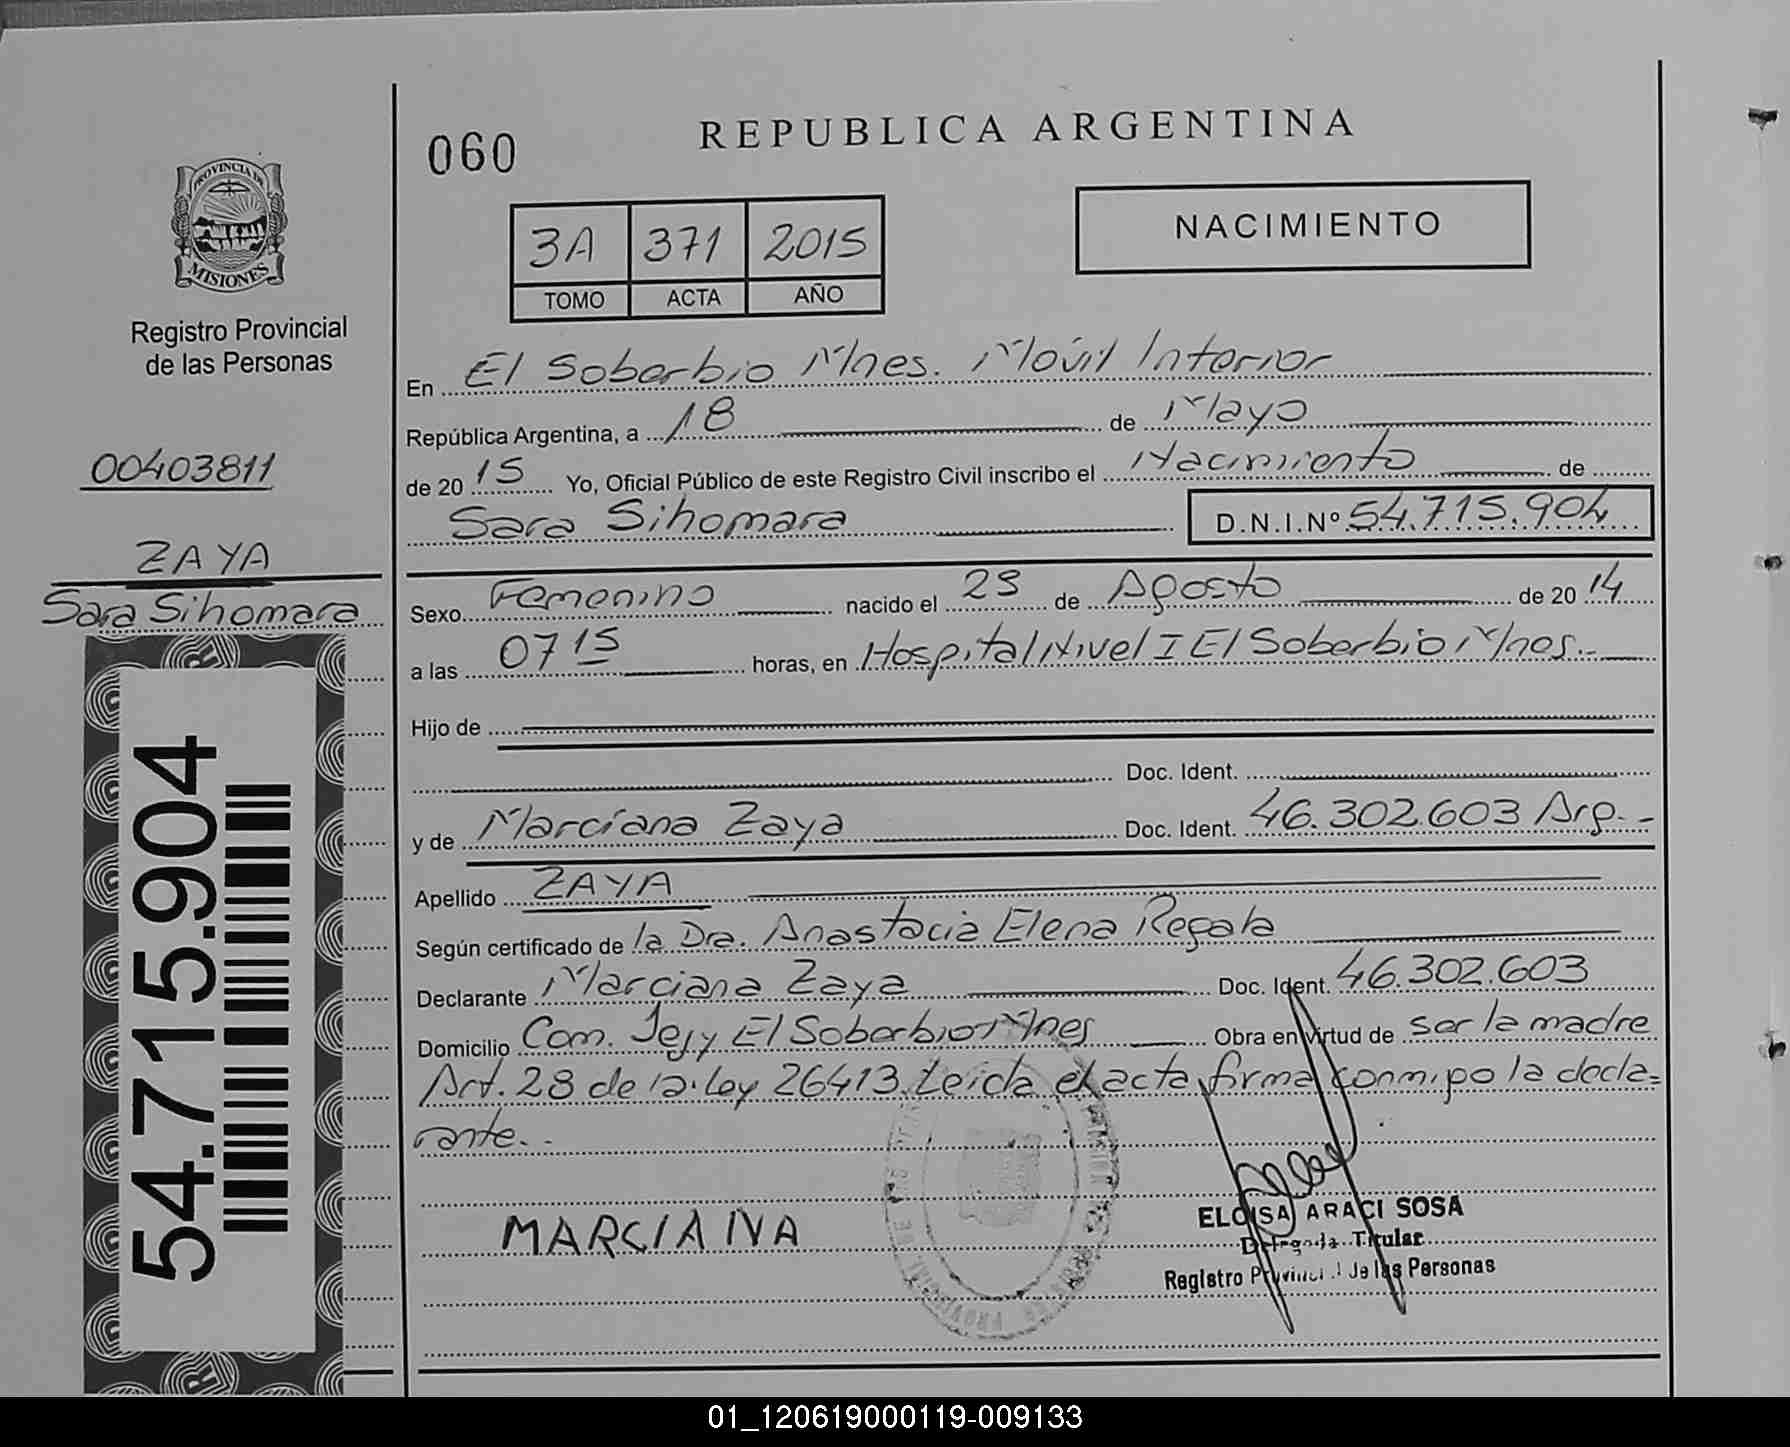 060
REPUBLICA ARGENTINA
PROVINCIA DE
MISIONES
Registro Provincial
de las Personas
3A 371 2015
TOMO ACTA AÑO
NACIMIENTO
En El Soberbio Mnes. Móvil Interior
República Argentina, a 18 de Mayo
00403811
de 2015 Yo, Oficial Público de este Registro Civil inscribo el Nacimiento de
Sara Sihomara D.N.I.Nº 54.715.904
ZAYA
Sara Sihomara
Sexo Femenino nacido el 23 de Agosto de 2014
a las 0715 horas, en Hospital Nivel I El Soberbio Mnes.
Hijo de
Doc. Ident.
y de Marciana Zaya Doc. Ident. 46.302.603 Arg.-
Apellido ZAYA
Según certificado de la Dra. Anastacia Elena
Declarante Marciana Zaya Doc. Ident. 46.302.603
Domicilio Com. Jejy El Soberbio Mnes Obra en virtud de ser la madre
Art. 28 de la Ley 26413. Leida el acta, firma conmigo la decla=
rante..
54.715.904
MARCIANA
ELOISA ARACI SOSA
Delegada Titular
Registro Provincial de las Personas
01_120619000119-009133